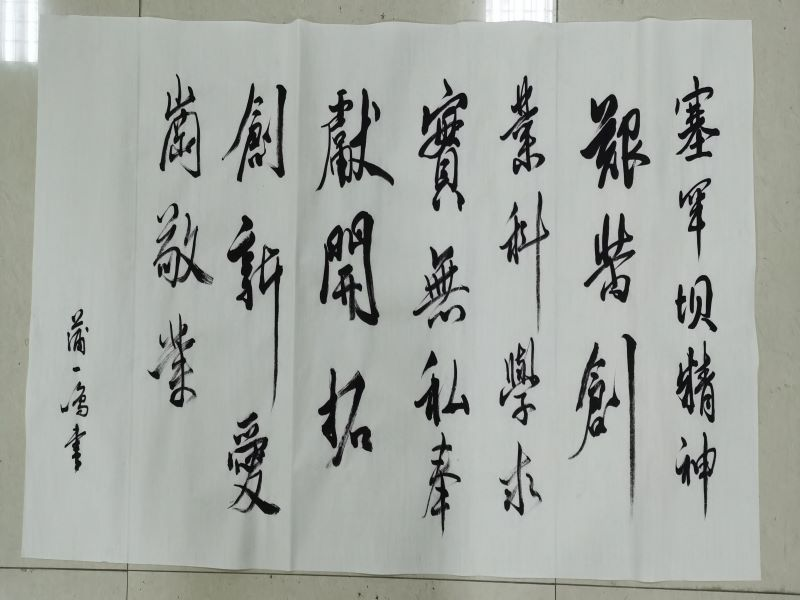 塞罕坝精神
艱苦創
業科學求
實無私奉
獻開拓
創新愛
崗敬業
蒲一鳴書